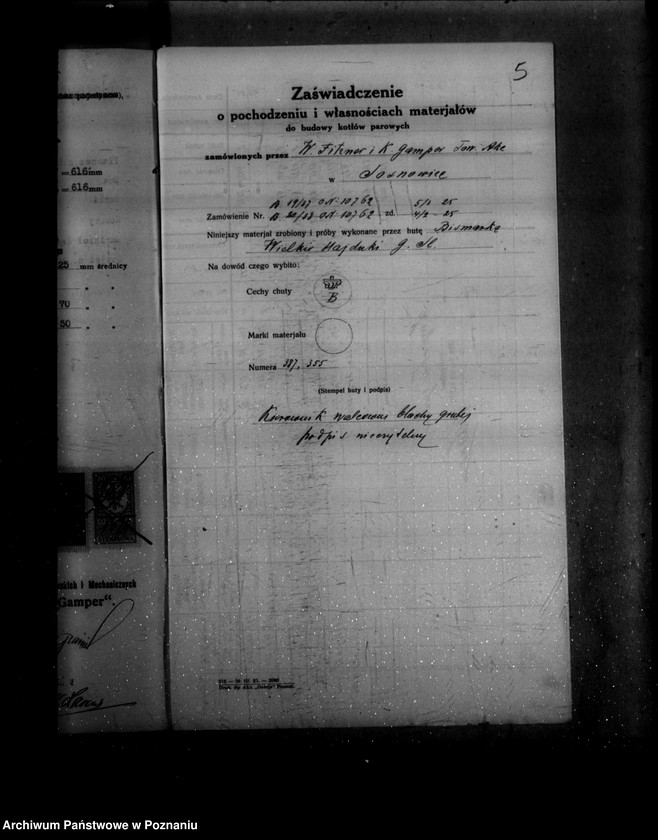 5
Zaświadczenie
o pochodzeniu i własnościach materjałów
do budowy kotłów parowych
zamówionych przez W. Fitzner i K Gamper Tow. Akc
w Sosnowice
B 19/27 ON 10762 5/2 25
Zamówienie Nr. B 20/27 ON 10762 zd. 4/2 25
Niniejszy materjał zrobiony i próby wykonane przez hutę Bismarka
Wielkie Hajduki G. Śl.
Na dowód czego wybito:
Cechy chuty B
Marki materjału
Numera 387, 355
(Stempel huty i podpis)
Kierownik walcowni blachy grubej
podpis nieczytelny
Druk. Sp. Akc. Poznań
616 mm
616 mm
25 mm średnicy
" "
70 " "
50 " "
i Mechanicznych
Gamper".
Archiwum Państwowe w Poznaniu